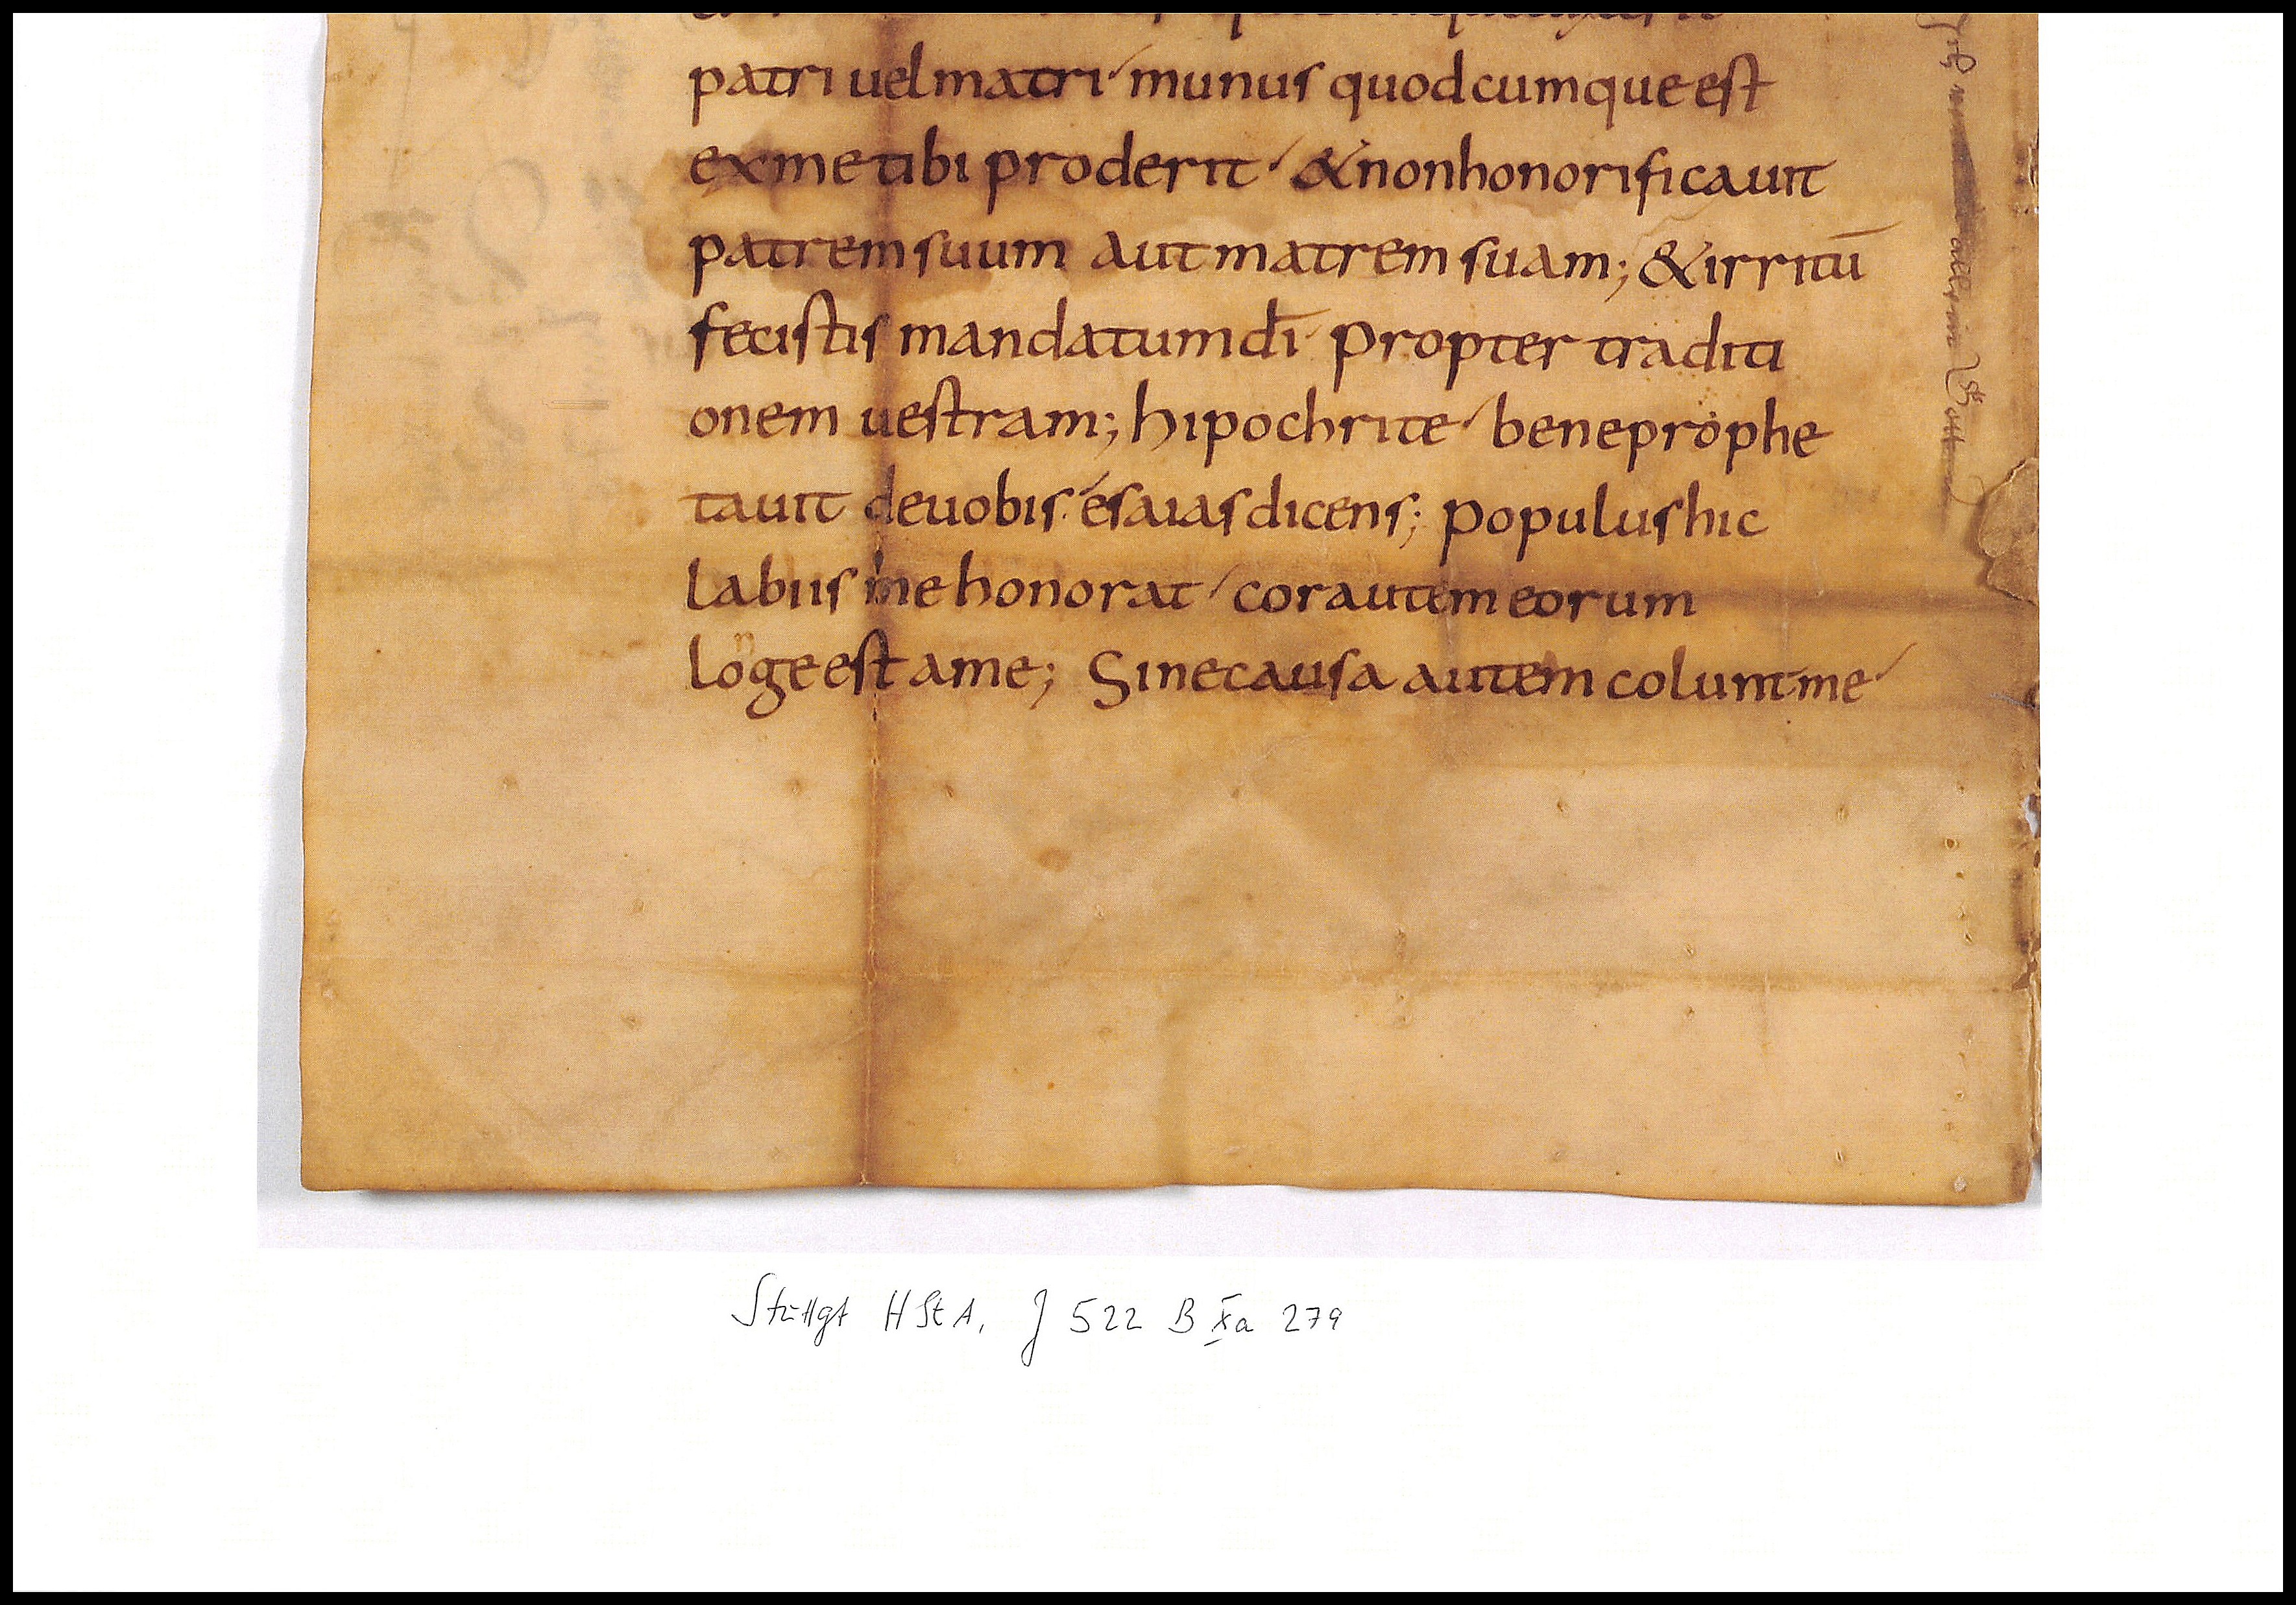 patri uel matri munus quodcumque est
ex me tibi proderit & non honorificauit
patrem suum aut matrem suam; & irritū
fecistis mandatum dī propter traditi
onem uestram; hipochrite bene prophe
tauit de uobis esaias dicens; populus hic
labiis me honorat cor autem eorum
longe est a me; Sine causa autem colunt me
Stuttgt HStA, J 522 B Xa 279